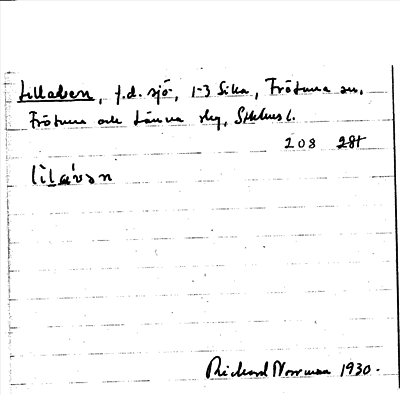 Lillåsen, f.d. sjö, 1-3 Sika, Frötuna sn,
Frötuna och Länna skg, Sthlms l.
208 281
lilåsən
Rickard Norrman 1930.